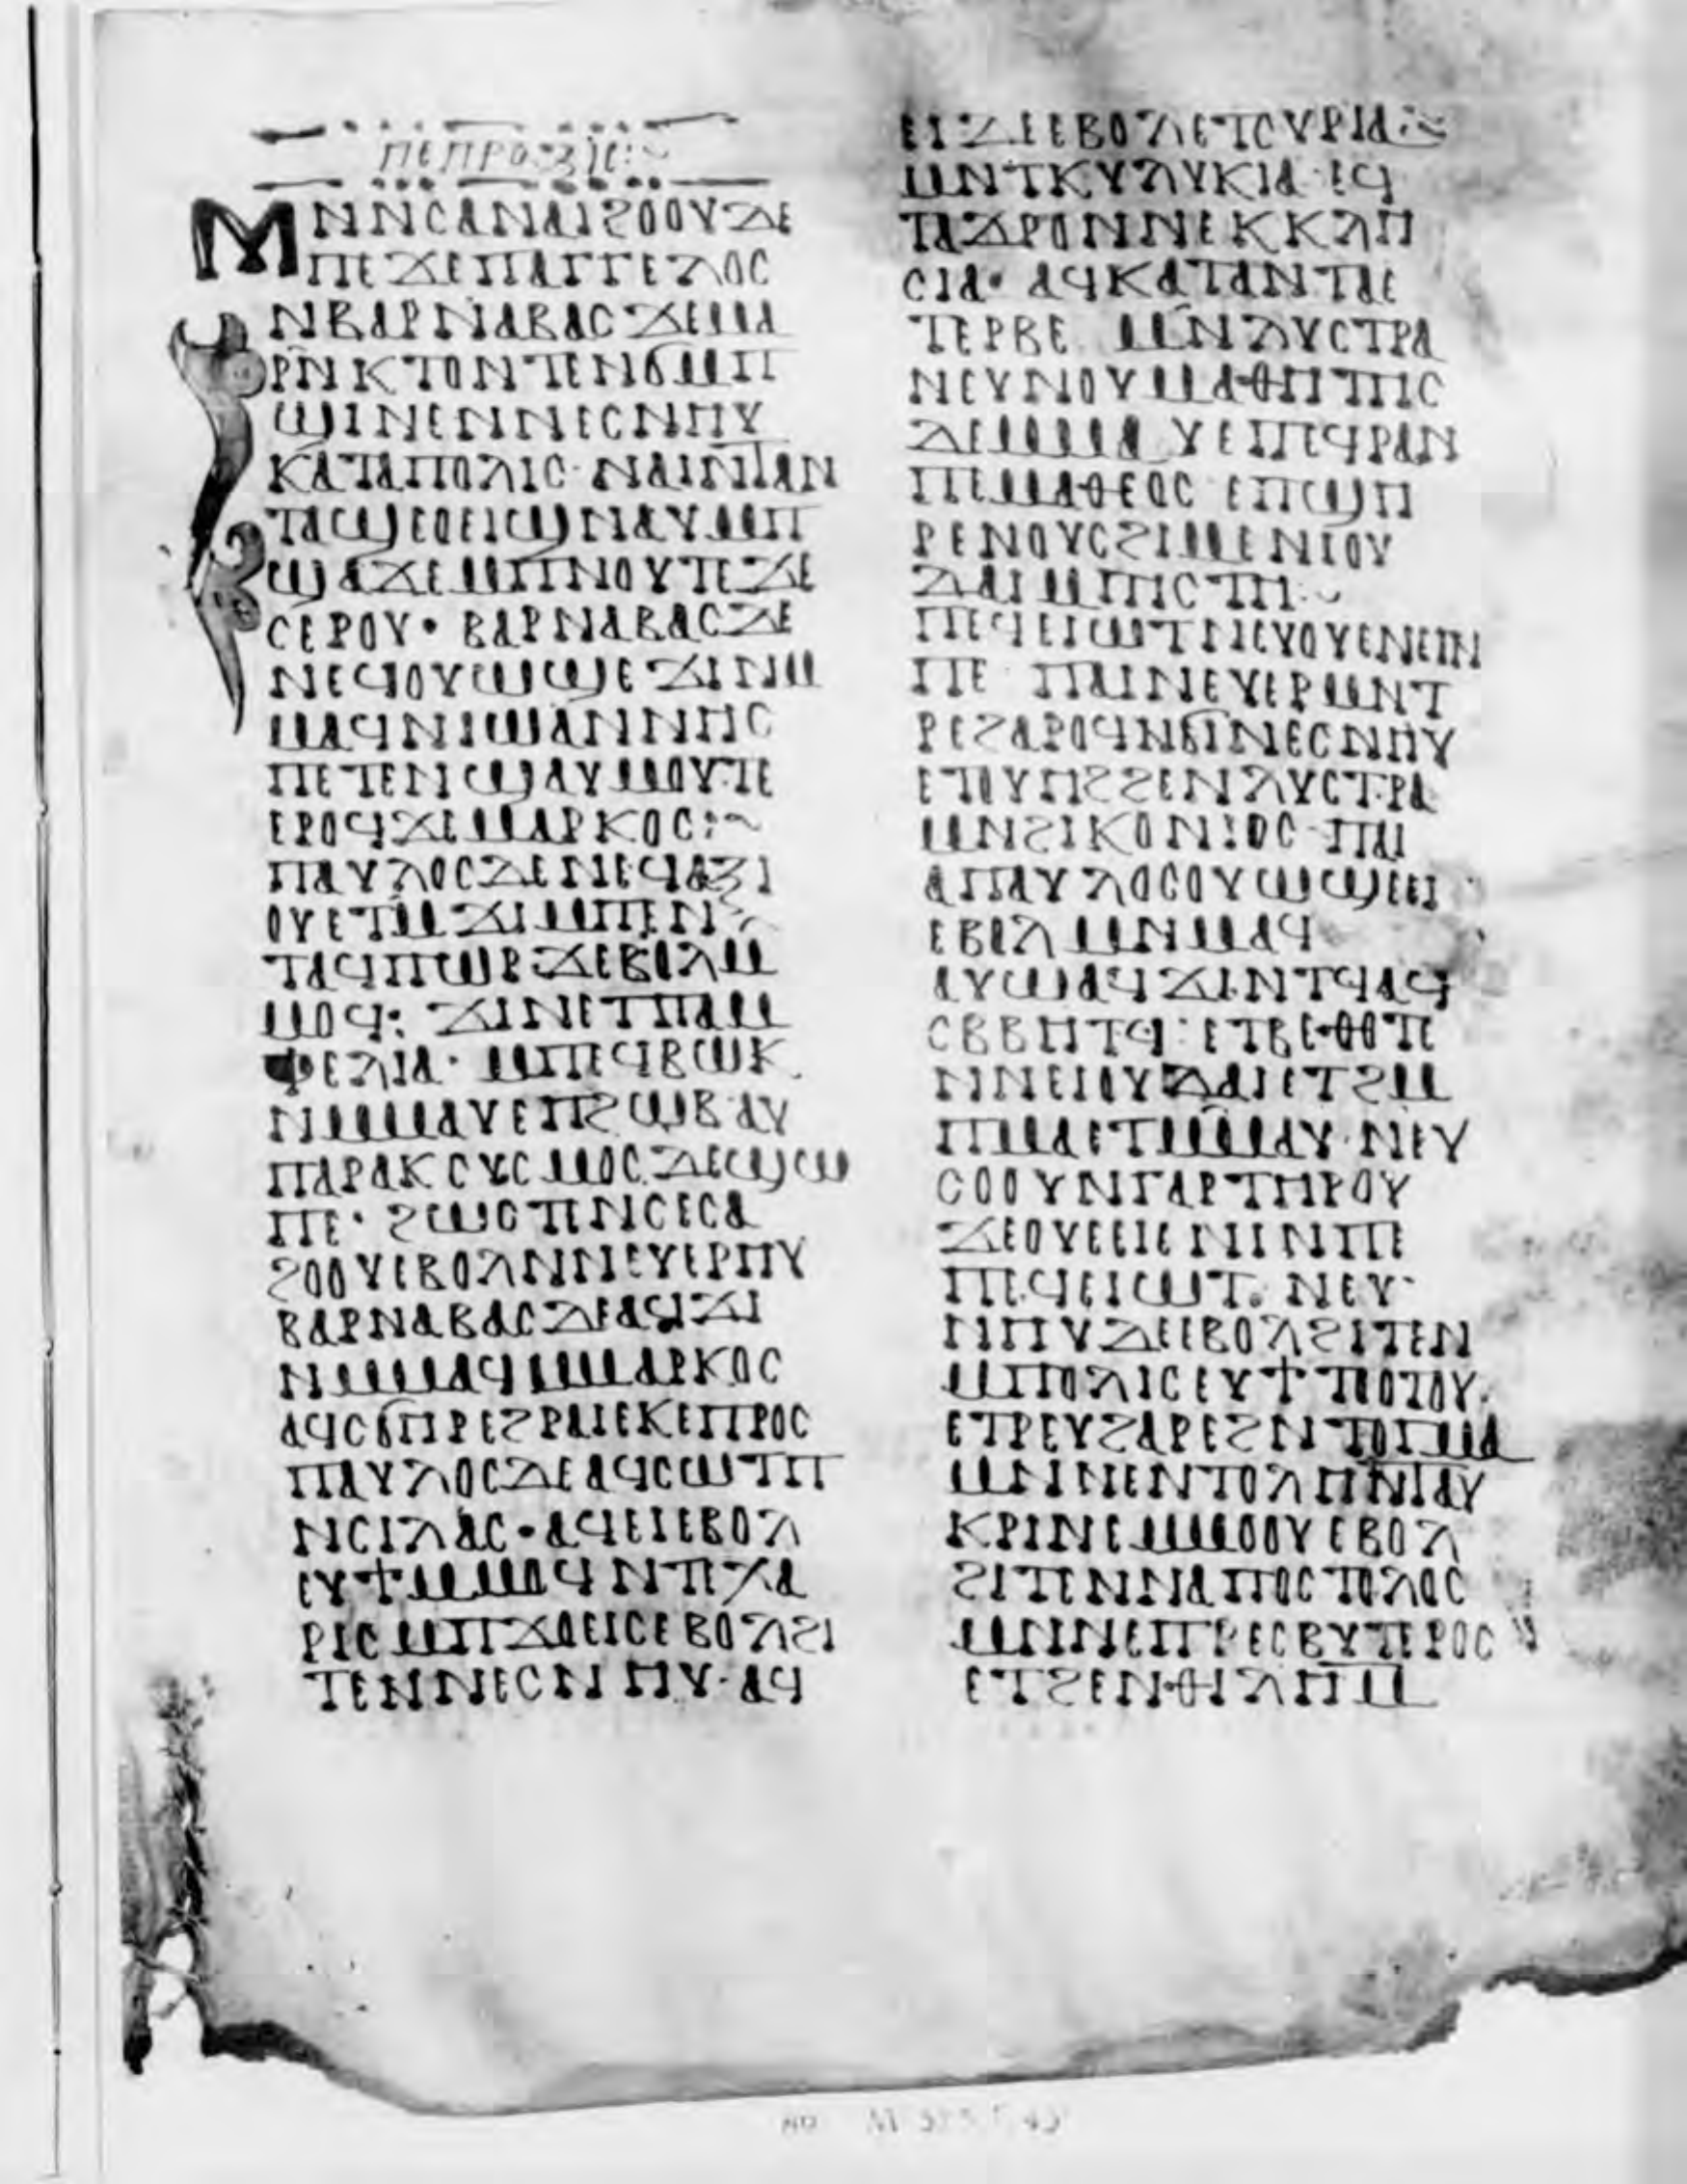 ⲡⲉⲡⲣⲟⲝⲓⲥ
ⲙⲛⲛⲥⲁⲛⲁⲓϩⲟⲟⲩⲇⲉ
ⲡⲉϫⲉⲡⲁⲅⲅⲉⲗⲟⲥ
ⲛⲃⲁⲣⲛⲁⲃⲁⲥϫⲉⲙⲁ
ⲣⲛⲕⲧⲟⲛⲧⲉⲛϭⲙⲡ
ϣⲓⲛⲉⲛⲛⲉⲥⲛⲏⲩ
ⲕⲁⲧⲁⲡⲟⲗⲓⲥ·ⲛⲁⲓⲛⲧⲁⲛ
ⲧⲁϣⲉⲟⲉⲓϣⲛⲁⲩⲙⲡ
ϣⲁϫⲉⲙⲡⲛⲟⲩⲧⲉϫⲉ
ⲥⲉⲣⲟⲩ·ⲃⲁⲣⲛⲁⲃⲁⲥⲇⲉ
ⲛⲉϥⲟⲩⲱϣⲉϫⲓⲛⲙ
ⲙⲁϥⲛⲓⲱⲁⲛⲛⲏⲥ
ⲡⲉⲧⲉⲛϣⲁⲩⲙⲟⲩⲧⲉ
ⲉⲣⲟϥϫⲉⲙⲁⲣⲕⲟⲥ:~
ⲡⲁⲩⲗⲟⲥⲇⲉⲛⲉϥⲁⲝⲓ
ⲟⲩⲉⲧⲙϫⲓⲙⲡⲉⲛ
ⲧⲁϥⲡⲱⲣϫⲉⲃⲟⲗⲙ
ⲙⲟϥ: ϫⲓⲛⲉⲧⲡⲁⲙ
ⲫⲉⲗⲓⲁ· ⲙⲡⲉϥⲃⲱⲕ
ⲛⲙⲙⲁⲩⲉⲡϩⲱⲃ·ⲁⲩ
ⲡⲁⲣⲁⲕⲥⲩⲥⲙⲟⲥⲇⲉϣⲱ
ⲡⲉ· ϩⲱⲥⲧⲉⲛⲥⲉⲥⲁ
ϩⲟⲟⲩⲉⲃⲟⲗⲛⲛⲉⲩⲉⲣⲏⲩ
ⲃⲁⲣⲛⲁⲃⲁⲥⲇⲉⲁϥϫⲓ
ⲛⲙⲙⲁϥⲙⲙⲁⲣⲕⲟⲥ
ⲁϥⲥϭⲏⲣⲉϩⲣⲁⲓⲉⲕⲉⲡⲣⲟⲥ
ⲡⲁⲩⲗⲟⲥⲇⲉⲁϥⲥⲱⲧⲡ
ⲛⲥⲓⲗⲁⲥ·ⲁϥⲉⲓⲉⲃⲟⲗ
ⲉⲩϯⲙⲙⲟϥⲛⲧⲉⲭⲁ
ⲣⲓⲥⲙⲡϫⲟⲉⲓⲥⲉⲃⲟⲗϩⲓ
ⲧⲉⲛⲛⲉⲥⲛⲏⲩ·ⲁϥ
ⲉⲓⲇⲉⲉⲃⲟⲗⲉⲧⲥⲩⲣⲓⲁ:~
ⲙⲛⲧⲕⲩⲗⲩⲕⲓⲁ·ⲉϥ
ⲧⲁϫⲣⲟⲛⲛⲉⲕⲕⲗⲏ
ⲥⲓⲁ· ⲁϥⲕⲁⲧⲁⲛⲧⲁⲉ
ⲧⲉⲣⲃⲉ ⲙⲛⲗⲩⲥⲧⲣⲁ
ⲛⲉⲩⲛⲟⲩⲙⲁⲑⲏⲧⲏⲥ
ⲇⲉⲙⲙⲁⲩⲉⲡⲉϥⲣⲁⲛ
ⲡⲉⲙⲁⲑⲉⲟⲥ ⲉⲡϣⲏ
ⲣⲉⲛⲟⲩⲥϩⲓⲙⲉⲛⲓⲟⲩ
ⲇⲁⲓⲙⲡⲓⲥⲧⲏ:~
ⲡⲉϥⲉⲓⲱⲧⲛⲉⲩⲟⲩⲉⲛⲉⲓⲛ
ⲡⲉ ⲡⲁⲓⲛⲉⲩⲉⲣⲙⲛⲧ
ⲣⲉϩⲁⲣⲟϥⲛϭⲓⲛⲉⲥⲛⲏⲩ
ⲉⲧⲟⲩⲏϩϩⲉⲛⲗⲩⲥⲧⲣⲁ
ⲙⲛϩⲓⲕⲟⲛⲓⲟⲥ·ⲡⲁⲓ
ⲁⲡⲁⲩⲗⲟⲥⲟⲩⲱϣⲉⲉⲓ
ⲉⲃⲟⲗ ⲙⲛⲙⲁϥ
ⲁⲩⲱⲁϥϫⲓⲛⲧϥⲁϥ
ⲥⲃⲃⲏⲧϥ:ⲉⲧⲃⲉⲑⲟⲧⲉ
ⲛⲛⲉⲓⲟⲩⲇⲁⲓⲉⲧϩⲙ
ⲡⲙⲁⲉⲧⲙⲙⲁⲩ·ⲛⲉⲩ
ⲥⲟⲟⲩⲛⲅⲁⲣⲧⲏⲣⲟⲩ
ϫⲉⲟⲩⲉⲉⲓⲉⲛⲓⲛⲡⲉ
ⲡⲉϥⲉⲓⲱⲧ. ⲛⲉⲩ·
ⲛⲏⲩⲇⲉⲉⲃⲟⲗϩⲓⲧⲉⲛ
ⲙⲡⲟⲗⲓⲥⲉⲩϯⲧⲟⲟⲧⲟⲩ.
ⲉⲧⲣⲉⲩϩⲁⲣⲉϩⲛⲧⲟⲅⲙⲁ
ⲙⲛⲛⲉⲛⲧⲟⲗⲏⲛⲧⲁⲩ
ⲕⲣⲓⲛⲉⲙⲙⲟⲟⲩⲉⲃⲟⲗ
ϩⲓⲧⲉⲛⲛⲁⲡⲟⲥⲧⲟⲗⲟⲥ
ⲙⲛⲛⲉⲡⲣⲉⲥⲃⲩⲧⲉⲣⲟⲥ
ⲉⲧϩⲉⲛⲑⲓⲗⲏⲙ